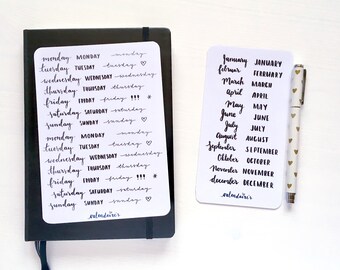 monday MONDAY monday
tuesday TUESDAY tuesday ♡
wednesday WEDNESDAY wednesday
thursday THURSDAY thursday
friday FRIDAY friday !!! *
saturday SATURDAY saturday
sunday SUNDAY sunday ♡
monday MONDAY monday
tuesday TUESDAY tuesday ♡
wednesday WEDNESDAY wednesday
thursday THURSDAY thursday
friday FRIDAY friday !!! *
saturday SATURDAY saturday
sunday SUNDAY sunday ♡
January JANUARY
februar FEBRUARY
March MARCH
April APRIL
May MAY
June JUNE
July JULY
August AUGUST
September SEPTEMBER
Oktober OCTOBER
November NOVEMBER
december DECEMBER